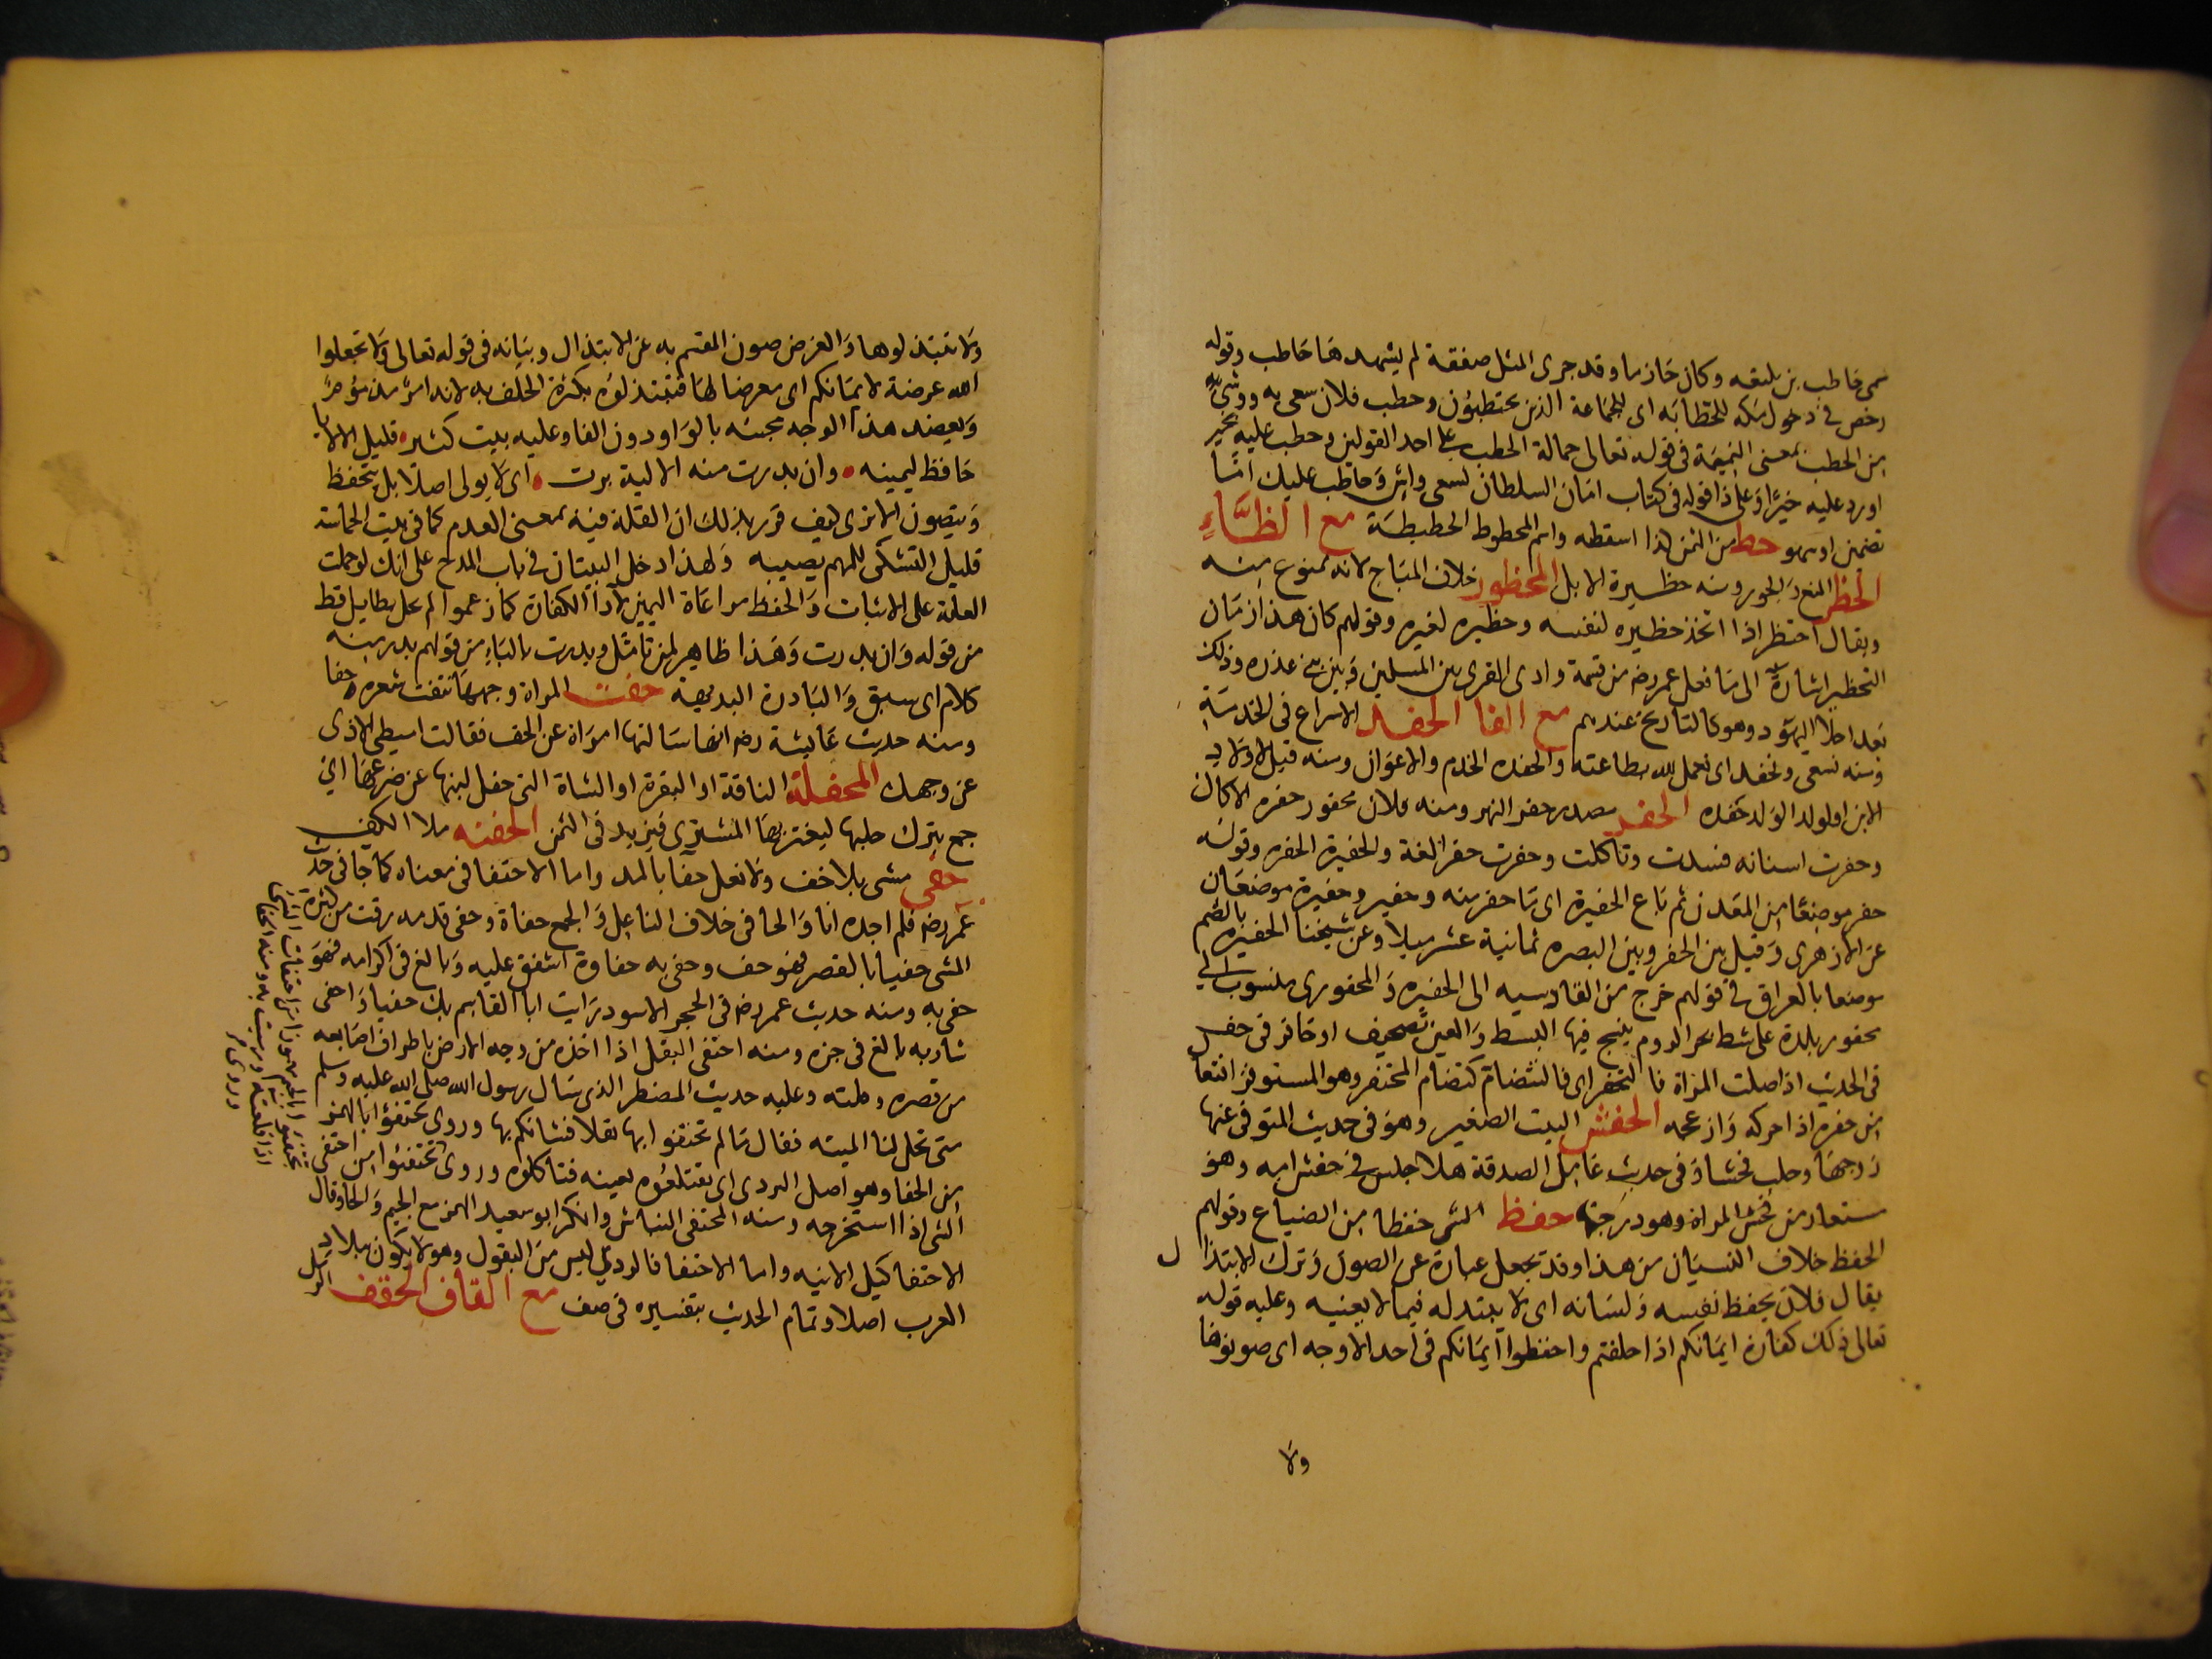 سمى حاطب بن بلتعه وكان حازما وقد جرى المثل صفقة لم يشهدها حاطب وقوله
رخص فى دخول مكه للحطابه اى للجماعة الذين يحتطبون وحطب فلان سعى به ووشى
من الحطب بمعنى النميمة فى قوله تعالى حمالة الحطب على احد القولين وحطب عليه بخير
اورد عليه خيرا وعلى ذا قوله فى كتاب امان السلطان لسعى واش وحاطب عليك اما
تضمين او سهو حط من الثمن كذا اسقطه واسم المحطوط الحطيطة مع الظاء
الحظر المنع والحوز ومنه حظيرة الابل المحظور خلاف المباح لانه ممنوع منه
ويقال احتظر اذا اتخذ حظيره لنفسه وحظيره لغيره وقولهم كان هذا زمان
التحظير اشارة الى ما فعل عمر رض من قسمة وادى القرى بين المسلمين وبين بنى عذره وذلك
بعد اجلا اليهود وهو كالتاريخ عندهم مع الفا الحفد الاسراع فى الخدمة
ومنه نسعى ونحفد اى نعمل لله بطاعته والحفده الخدم والاعوان ومنه قيل لاولاد
الابن او لولد الولد حفده الحفر مصدر حفر النهر ومنه فلان محفور حفره الاكال
وحفرت اسنانه فسدت وتاكلت وحفرت حفرا لغة والحفيرة الحفره وقوله
حفر موضعا من المعدن ثم باع الحفيرة اى ما حفر منه وحفير وحفيرة موضعان
عن الازهرى وقيل بين الحفر وبين البصره ثمانية عشر ميلا وعن شيخنا الحفيره بالضم
موضعا بالعراق فى قولهم خرج من القادسيه الى الحفيره والمحفورى منسوب الى
محفور بلدة على شط بحر الروم ينسج فيها البسط والعين تصحيف اوحافز فى حفز
فى الحديث اذا صلت المراة فالتحتفز اى فالتتضام كتضام المحتفز وهو المستوفز افتعال
من حفزه اذا حركه وازعجه الحفش البيت الصغير وهو فى حديث المتوفى عنها
زوجها وحلب فحشا وفى حديث عامل الصدقة هلا جلس فى حفش امه وهو
مستعار من حفش المراة وهو درجها حفظ الشى حفظا من الضياع وقولهم
الحفظ خلاف النسيان من هذا وقد يجعل عبارة عن الصون وترك الابتذال
يقال فلان يحفظ نفسه ولسانه اى لا يبتذله فيما لا يعنيه وعليه قوله
تعالى ذلك كفارة ايمانكم اذا حلفتم واحفظوا ايمانكم فى احد الاوجه اى صونوها
ولا
ولا تبتذلوها والغرض صون المقسم به عن الابتذال وبيانه فى قوله تعالى ولا تجعلوا
الله عرضة لايمانكم اى معرضا لها فتبتذلوه بكثرة الحلف به لانه امر مذموم
ويعضد هذا الوجه مجيئه بالواو دون الفا وعليه بيت كثير قليل الالايا
حافظ ليمينه وان بدرت منه الالية برت اى لا يولى اصلا بل يتحفظ
ويتصون الا ترى كيف قرر بذلك ان القلة فيه بمعنى العدم كما فى بيت الحماسة
قليل التشكى للمهم يصيبه ولهذا دخل البيتان فى باب المدح على انك لو حملت
القلة على الاثبات والحفظ مراعاة اليمين لادا الكفارة كما زعموا لم تحل بطايل قط
من قوله وان بدرت وهذا ظاهر لمن تامل وبدرت بالباء من قولهم بدر منه
كلام اى سبق والبادرة البديهة حفت المراة وجهها نتفت شعره حفا
ومنه حديث عايشة رض انها سالتها امراة عن الحف فقالت اميطى الاذى
عن وجهك المحفلة الناقة او البقرة او الشاة التى حفل لبنها عن ضرعها اى
جمع بترك حلبها ليغتر بها المشترى فيزيد فى الثمن الحفنه ملا الكف
حفى مشى بلا خف ولا نعل حفا بالمد واما الاحتفا فى معناه كما جا فى حديث
عمر رض فلم اجده انا والحافى خلاف الناعل والجمع حفاة وحفى قدمه رقت من كثرة
المشى حفيا بالقصر فهو حف وحفى به حفاوة اشفق عليه وبالغ فى اكرامه فهو
حفى به ومنه حديث عمر رض فى الحجر الاسود رايت ابا القاسم بك حفيا واحفى
شاربه بالغ فى جزه ومنه احتفى البقل اذا اخذه من وجه الارض باطراف اصابعه
من قصره وقلته وعليه حديث المضطر الذى سال رسول الله صلى الله عليه وسلم
متى تحل لنا الميته فقال ما لم تحتفوا بها بقلا فشانكم بها وروى تحتفئوا بالهمز
من الحفا وهو اصل البردى اى تقتلعوه بعينه فتاكلوه وروى تختفئوا من اختفى
الشى اذا استخرجه ومنه المختفى النباش وانكر ابو سعيد الهمز مع الجيم والحا وقال
الاجتفا كبل الانيه واما الاحتفا فالبردى ليس من البقول وهو لا يكون ببلاد
العرب اصلا وتمام الحديث بتفسيره فى صف مع القاف الحقف الرمل